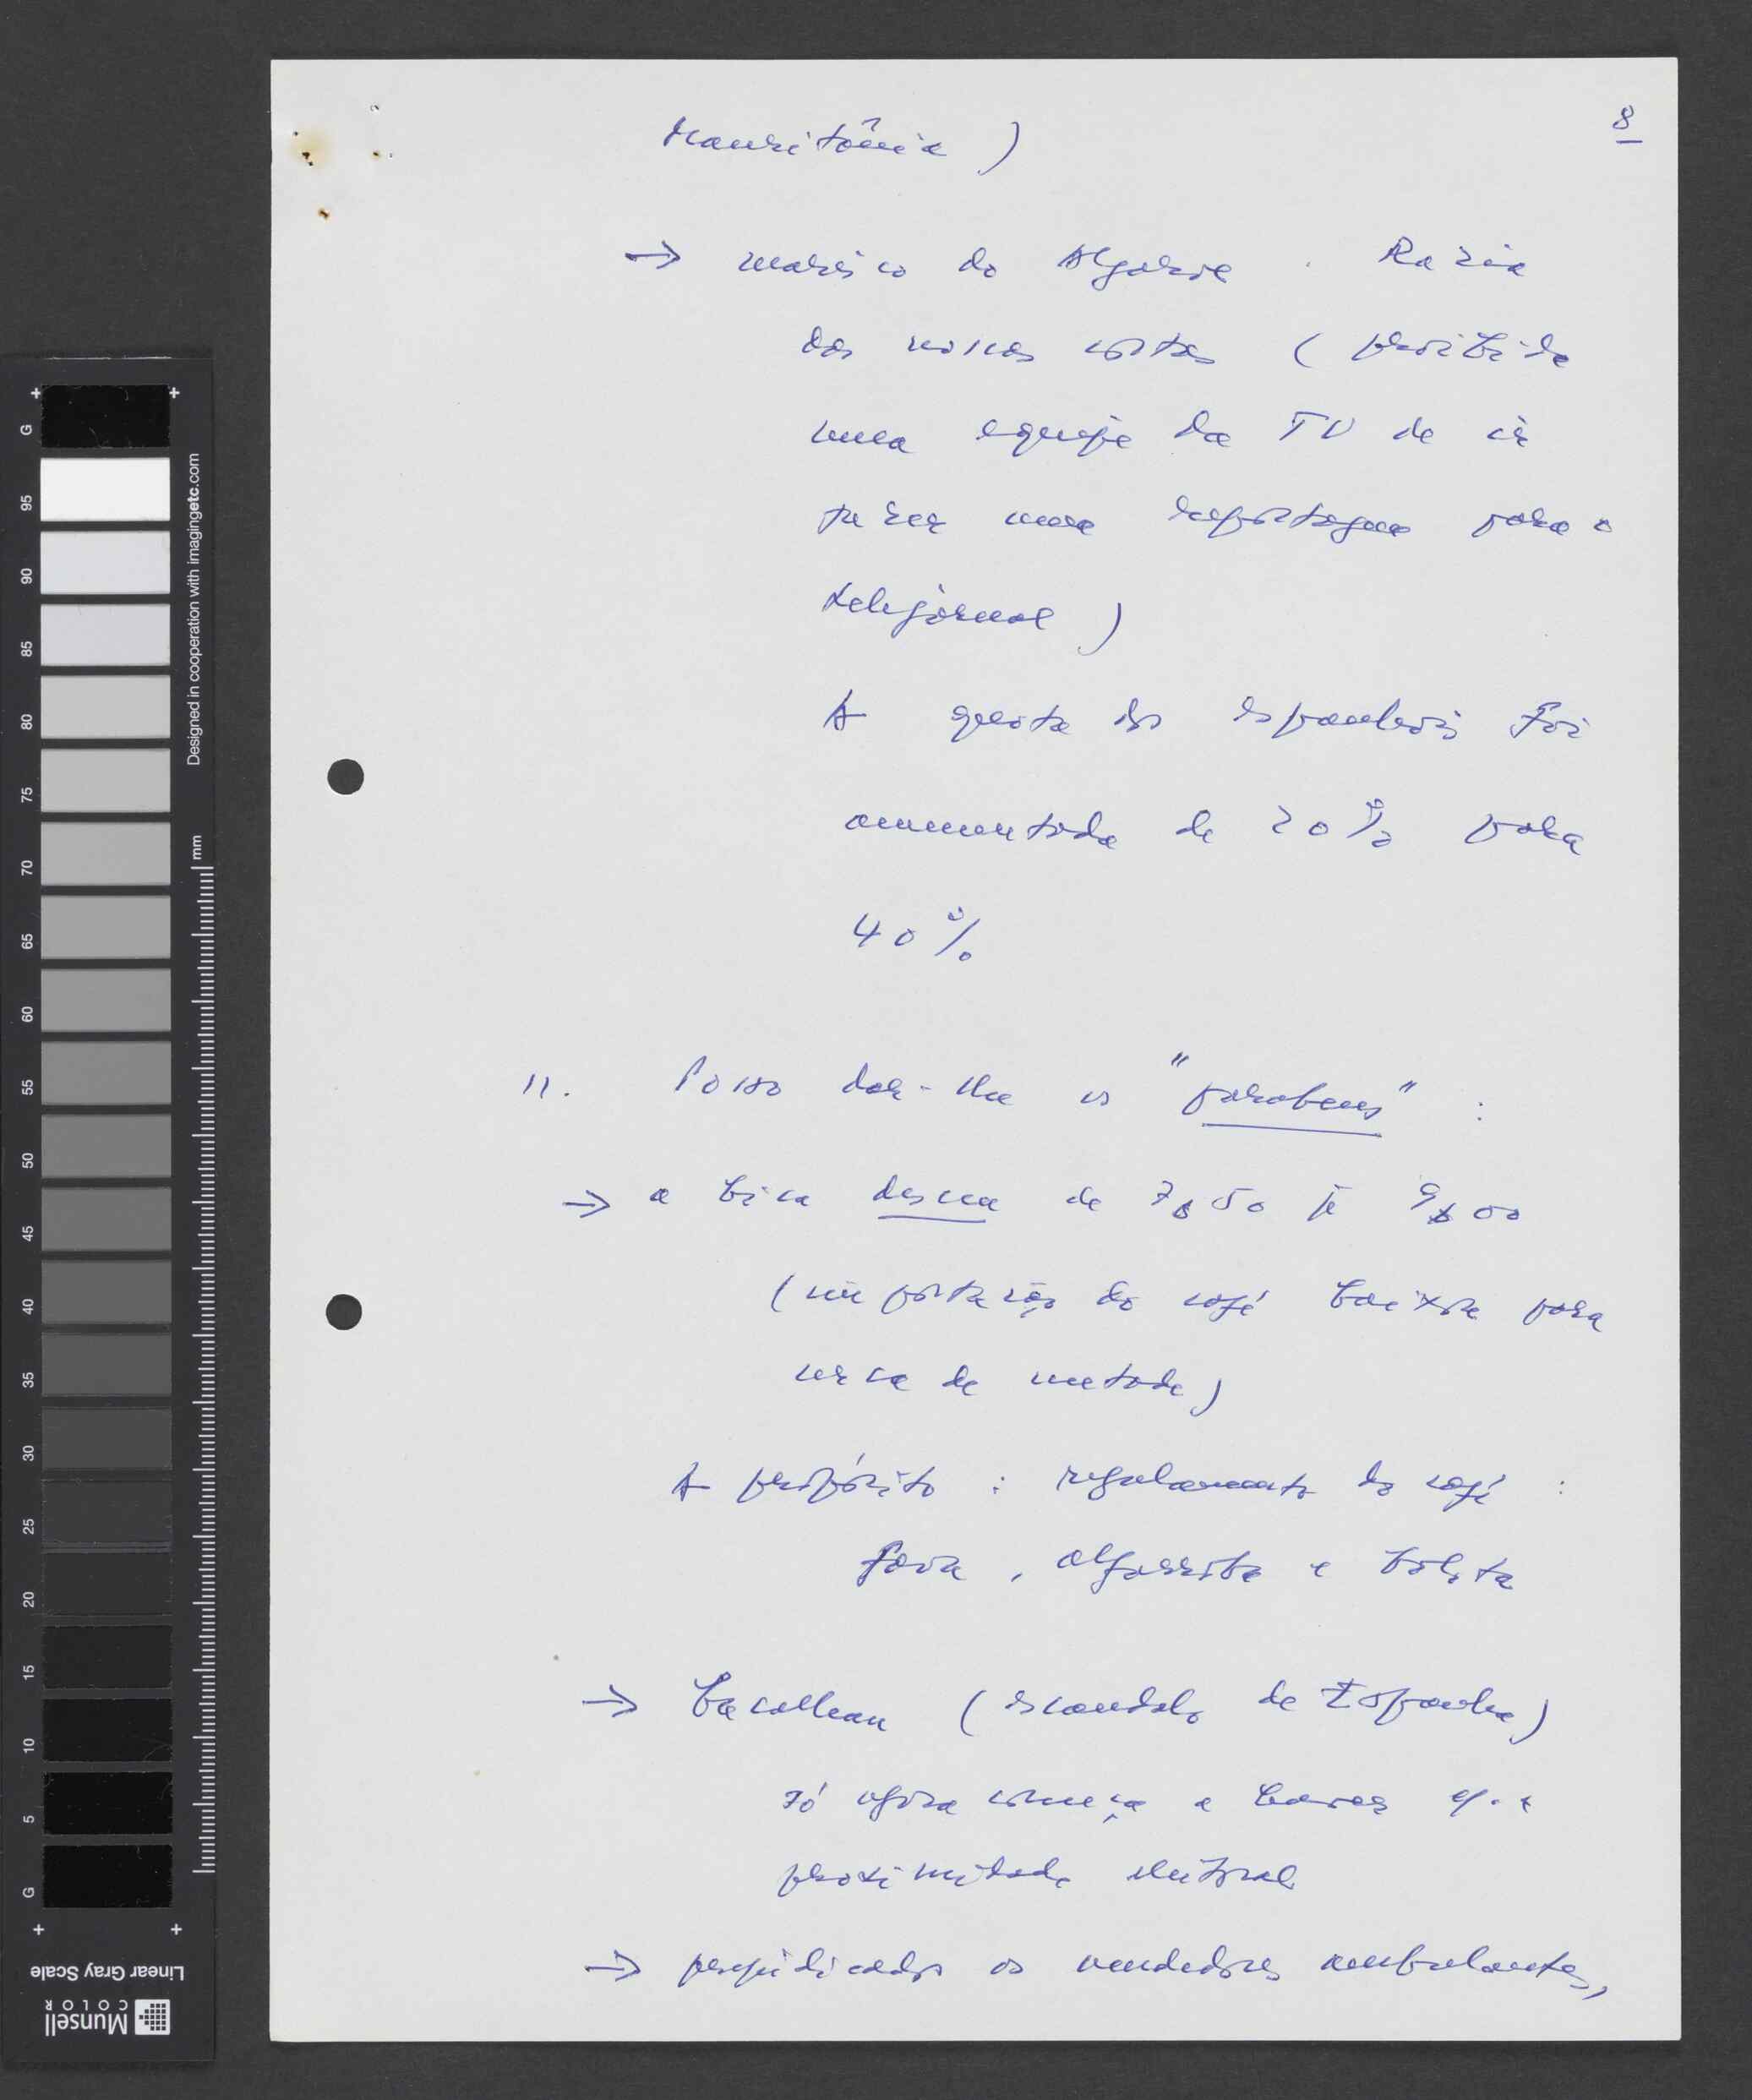 8
Mauritânia)
→ marisco do Algarve. Razia
das nossas costas (proibida
uma equipe da TV de ir
fazer uma reportagem para o
telejornal)
A quota dos espanhois foi
aumentada de 20% para
40%
11. Posso dar-lhe os "parabens" :
→ a bica desceu de 7$50 p. 9$00
(importação do café baixou para
cerca de metade)
A propósito : regulamento do café :
fava, alfarroba e bolota
→ bacalhau (escandalo de Espanha)
só agora começa a haver c/ a
proximidade eleitoral
→ prejudicados os vendedores ambulantes,
G
95
90
85
80
75
70
65
60
55
50
45
40
35
30
25
20
15
10
5
G
mm
Designed in cooperation with imagingetc.com
Munsell
COLOR
Linear Gray Scale